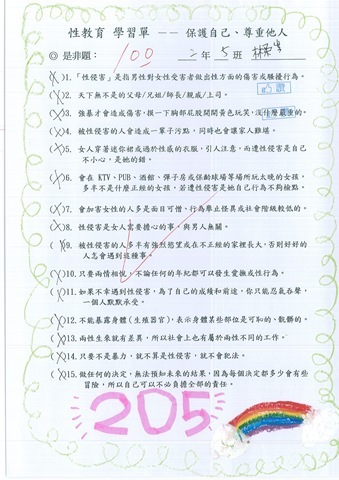 性教育 學習單 —— 保護自己、尊重他人
◎ 是非題： 100 二年5班
(X)1.「性侵害」是指男性對女性受害者做出性方面的傷害或騷擾行為。
(X)2. 天下無不是的父母/兄姐/師長/親戚/上司。
(X)3. 強暴才會造成傷害，摸一下胸部屁股開開黃色玩笑，沒什麼嚴重的。
(X)4. 被性侵害的人會造成一輩子污點，同時也會讓家人難堪。
(X)5. 女人穿著迷你裙或過於性感的衣服，引人注意，而遭性侵害是自己
不小心，是她的錯。
(X)6. 會在 KTV、PUB、酒館、彈子房或保齡球場等場所玩太晚的女孩，
多半不是什麼正經的女孩，若遭性侵害是她自己行為不夠檢點。
(X)7. 會加害女性的人多是面目可憎、行為舉止怪異或社會階級較低的。
(X)8. 性侵害是女人需要擔心的事，與男人無關。
(X)9. 被性侵害的人多半有強烈慾望或在不正經的家裡長大，否則好好的
人怎會遇到這種事。
(X)10. 只要兩情相悅，不論任何的年紀都可以發生愛撫或性行為。
(X)11. 如果不幸遇到性侵害，為了自己的成績和前途，你只能忍氣吞聲，
一個人默默承受。
(X)12. 不能暴露身體(生殖器官)，表示身體某些部位是可恥的、骯髒的。
(X)13. 兩性生來就有差異，所以社會上也有屬於兩性不同的工作。
(X)14. 只要不是暴力，就不算是性侵害，就不會犯法。
(X)15. 做任何的決定，無法預知未來的結果，因為每個決定都多少會有些
冒險，所以自己可以不必負擔全部的責任。
205